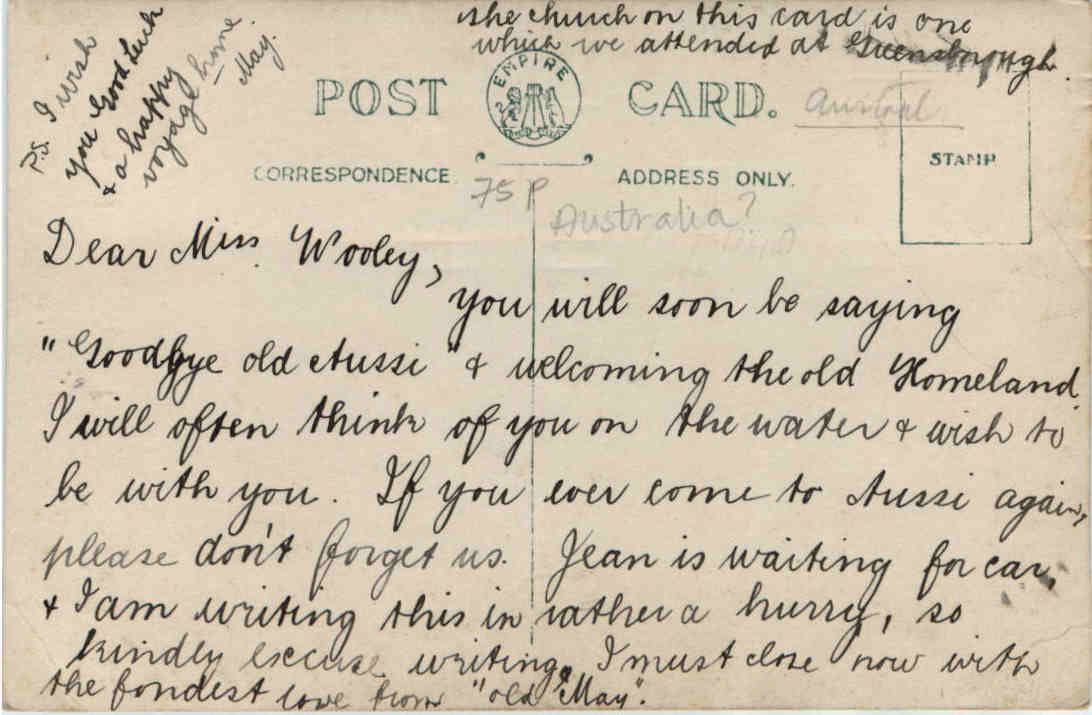 the church on this card is one
which we attended at Greensborough.
P.S. I wish
you Good Luck
& a happy
voyage home
May.
POST CARD.
EMPIRE
Austral
CORRESPONDENCE
ADDRESS ONLY.
STAMP
75p
Australia?
Dear Miss. Wooley,
you will soon be saying
"Goodbye old Aussi" & welcoming the old Homeland.
I will often think of you on the water & wish to
be with you. If you ever come to Aussi again,
please don't forget us. Jean is waiting for car,
& I am writing this in rather a hurry, so
kindly excuse writing. I must close now with
the fondest love from "old May".